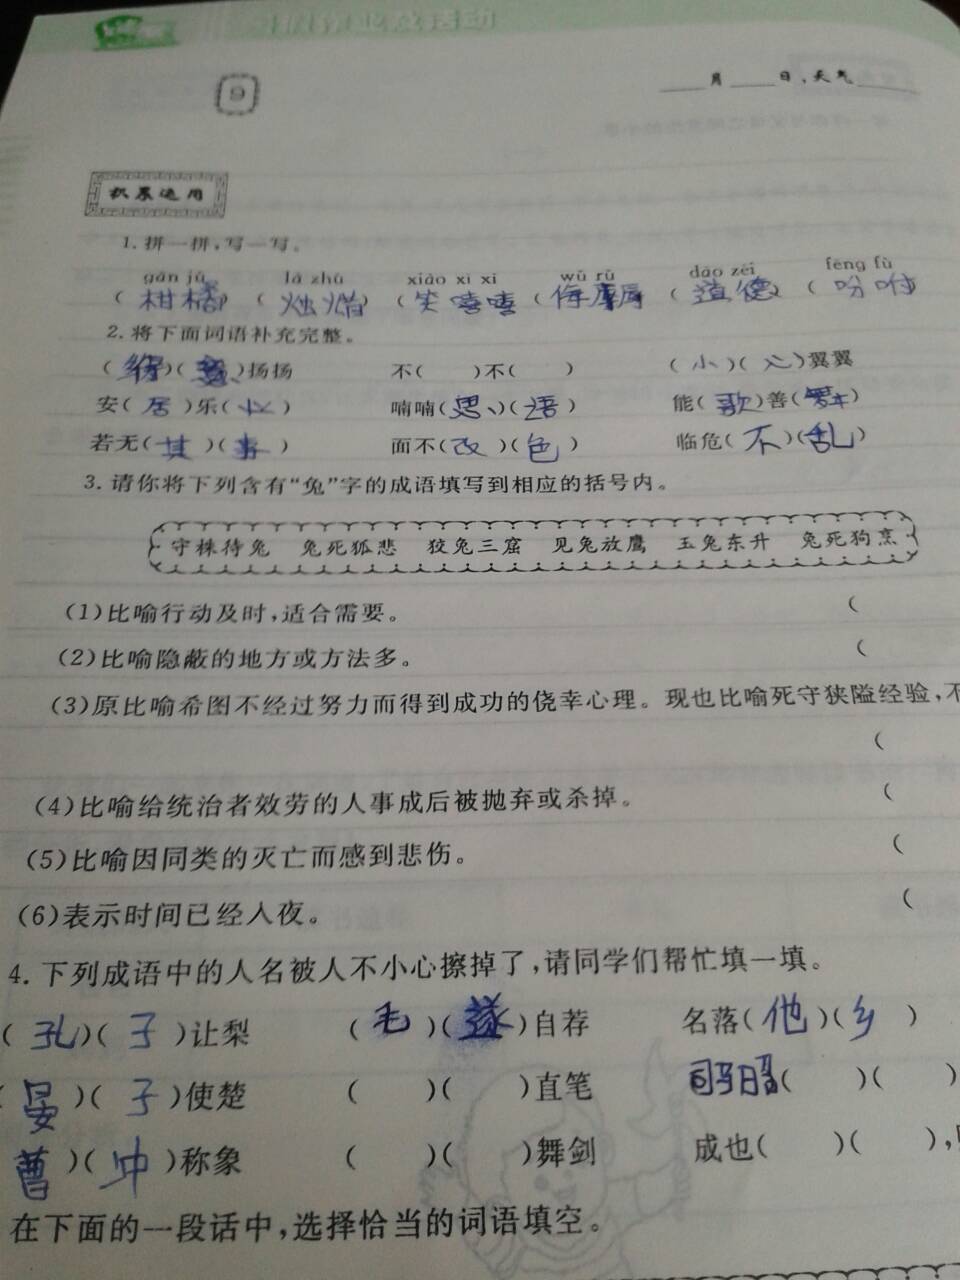 9
月 日,天气
积累运用
1.拼一拼,写一写。
gān jú là zhú xiào xī xī wǔ rǔ dào zéi fēng fù
(柑橘) (烛焰) (笑嘻嘻) (侮辱) (道德) (吩咐)
2.将下面词语补充完整。
(得)(意)扬扬 不( )不( ) (小)(心)翼翼
安(居)乐( ) 喃喃(思)(语) 能(歌)善(舞)
若无(其)(事) 面不(改)(色) 临危(不)(乱)
3.请你将下列含有“兔”字的成语填写到相应的括号内。
守株待兔 兔死狐悲 狡兔三窟 见兔放鹰 玉兔东升 兔死狗烹
(1)比喻行动及时,适合需要。 (
(2)比喻隐蔽的地方或方法多。 (
(3)原比喻希图不经过努力而得到成功的侥幸心理。现也比喻死守狭隘经验,不
(
(4)比喻给统治者效劳的人事成后被抛弃或杀掉。 (
(5)比喻因同类的灭亡而感到悲伤。 (
(6)表示时间已经入夜。 (
4.下列成语中的人名被人不小心擦掉了,请同学们帮忙填一填。
(孔)(子)让梨 (毛)(遂)自荐 名落(他)(乡)
(晏)(子)使楚 ( )( )直笔 司马昭( )( )
曹)(冲)称象 ( )( )舞剑 成也( )( ),
在下面的一段话中,选择恰当的词语填空。